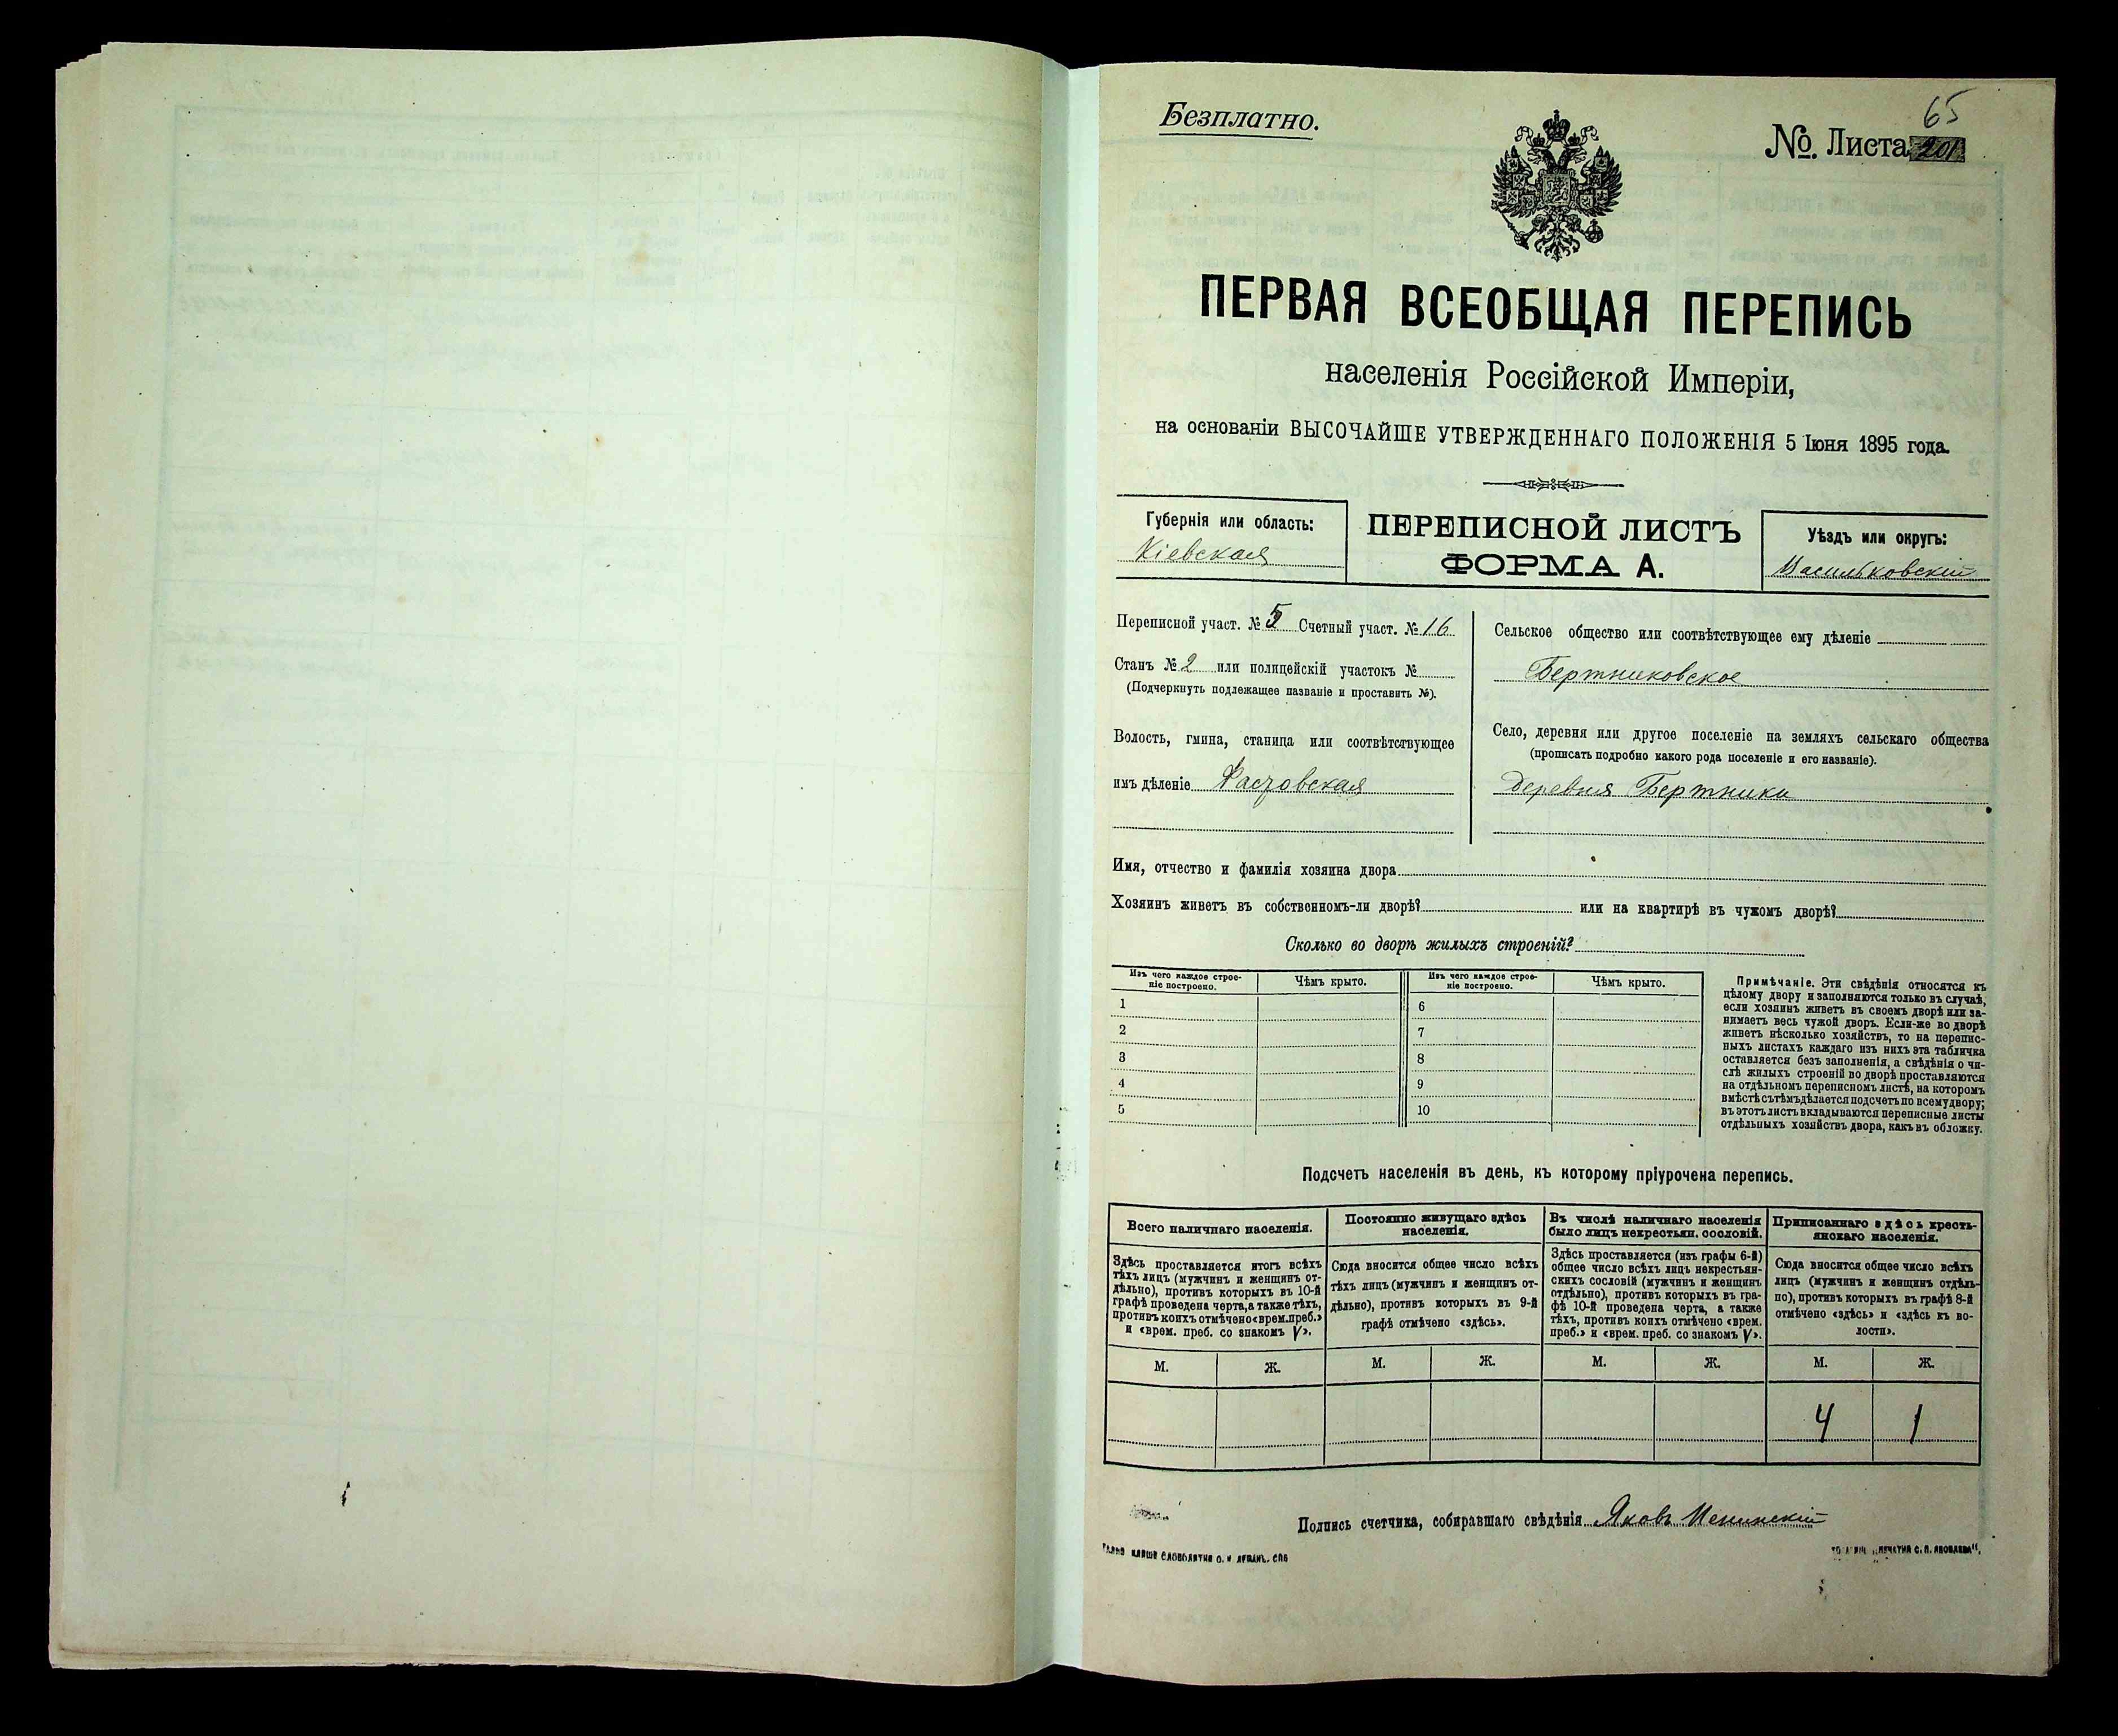 Безплатно.
65
№. Листа 201
ПЕРВАЯ ВСЕОБЩАЯ ПЕРЕПИСЬ
населенія Россійской Имперіи,
на основаніи ВЫСОЧАЙШЕ УТВЕРЖДЕННАГО ПОЛОЖЕНІЯ 5 Іюня 1895 года.
Губернія или область:
Кіевская
ПЕРЕПИСНОЙ ЛИСТЪ
ФОРМА А.
Уѣздъ или округъ:
Васильковскій
Переписной участ. № 5 Счетный участ. № 16
Станъ № 2 или полицейскій участокъ №
(Подчеркнуть подлежащее названіе и проставить №).
Волость, гмина, станица или соотвѣтствующее
имъ дѣленіе Фастовская
Сельское общество или соотвѣтствующее ему дѣленіе
Бертниковское
Село, деревня или другое поселеніе на земляхъ сельскаго общества
(прописать подробно какого рода поселеніе и его названіе).
Деревня Бертники
Имя, отчество и фамилія хозяина двора
Хозяинъ живетъ въ собственномъ-ли дворѣ? или на квартирѣ въ чужомъ дворѣ?
Сколько во дворѣ жилыхъ строеній?
Изъ чего каждое строе-
ніе построено.
Чѣмъ крыто.
Изъ чего каждое строе-
ніе построено.
Чѣмъ крыто.
1
6
2
7
3
8
4
9
5
10
Примѣчаніе. Эти свѣдѣнія относятся къ
цѣлому двору и заполняются только въ случаѣ,
если хозяинъ живетъ въ своемъ дворѣ или за-
нимаетъ весь чужой дворъ. Если-же во дворѣ
живетъ нѣсколько хозяйствъ, то на перепис-
ныхъ листахъ каждаго изъ нихъ эта табличка
оставляется безъ заполненія, а свѣдѣнія о чи-
слѣ жилыхъ строеній во дворѣ проставляются
на отдѣльномъ переписномъ листѣ, на которомъ
вмѣстѣ съ тѣмъ дѣлается подсчетъ по всему двору;
въ этотъ листъ вкладываются переписные листы
отдѣльныхъ хозяйствъ двора, какъ въ обложку.
Подсчетъ населенія въ день, къ которому пріурочена перепись.
Всего наличнаго населенія.
Здѣсь проставляется итогъ всѣхъ
тѣхъ лицъ (мужчинъ и женщинъ от-
дѣльно), противъ которыхъ въ 10-й
графѣ проведена черта, а также тѣхъ,
противъ коихъ отмѣчено «врем. преб.»
и «врем. преб. со знакомъ V».
Постоянно живущаго здѣсь
населенія.
Сюда вносится общее число всѣхъ
тѣхъ лицъ (мужчинъ и женщинъ от-
дѣльно), противъ которыхъ въ 9-й
графѣ отмѣчено «здѣсь».
Въ числѣ наличнаго населенія
было лицъ некрестьян. сословій.
Здѣсь проставляется (изъ графы 6-й)
общее число всѣхъ лицъ некрестьян-
скихъ сословій (мужчинъ и женщинъ
отдѣльно), противъ которыхъ въ гра-
фѣ 10-й проведена черта, а также
тѣхъ, противъ коихъ отмѣчено «врем.
преб.» и «врем. преб. со знакомъ V».
Приписаннаго здѣсь кресть-
янскаго населенія.
Сюда вносится общее число всѣхъ
лицъ (мужчинъ и женщинъ отдѣль-
но), противъ которыхъ въ графѣ 8-й
отмѣчено «здѣсь» и «здѣсь къ во-
лости».
М. Ж. М. Ж. М. Ж. М. Ж.
4 1
Подпись счетчика, собиравшаго свѣдѣнія Яковъ